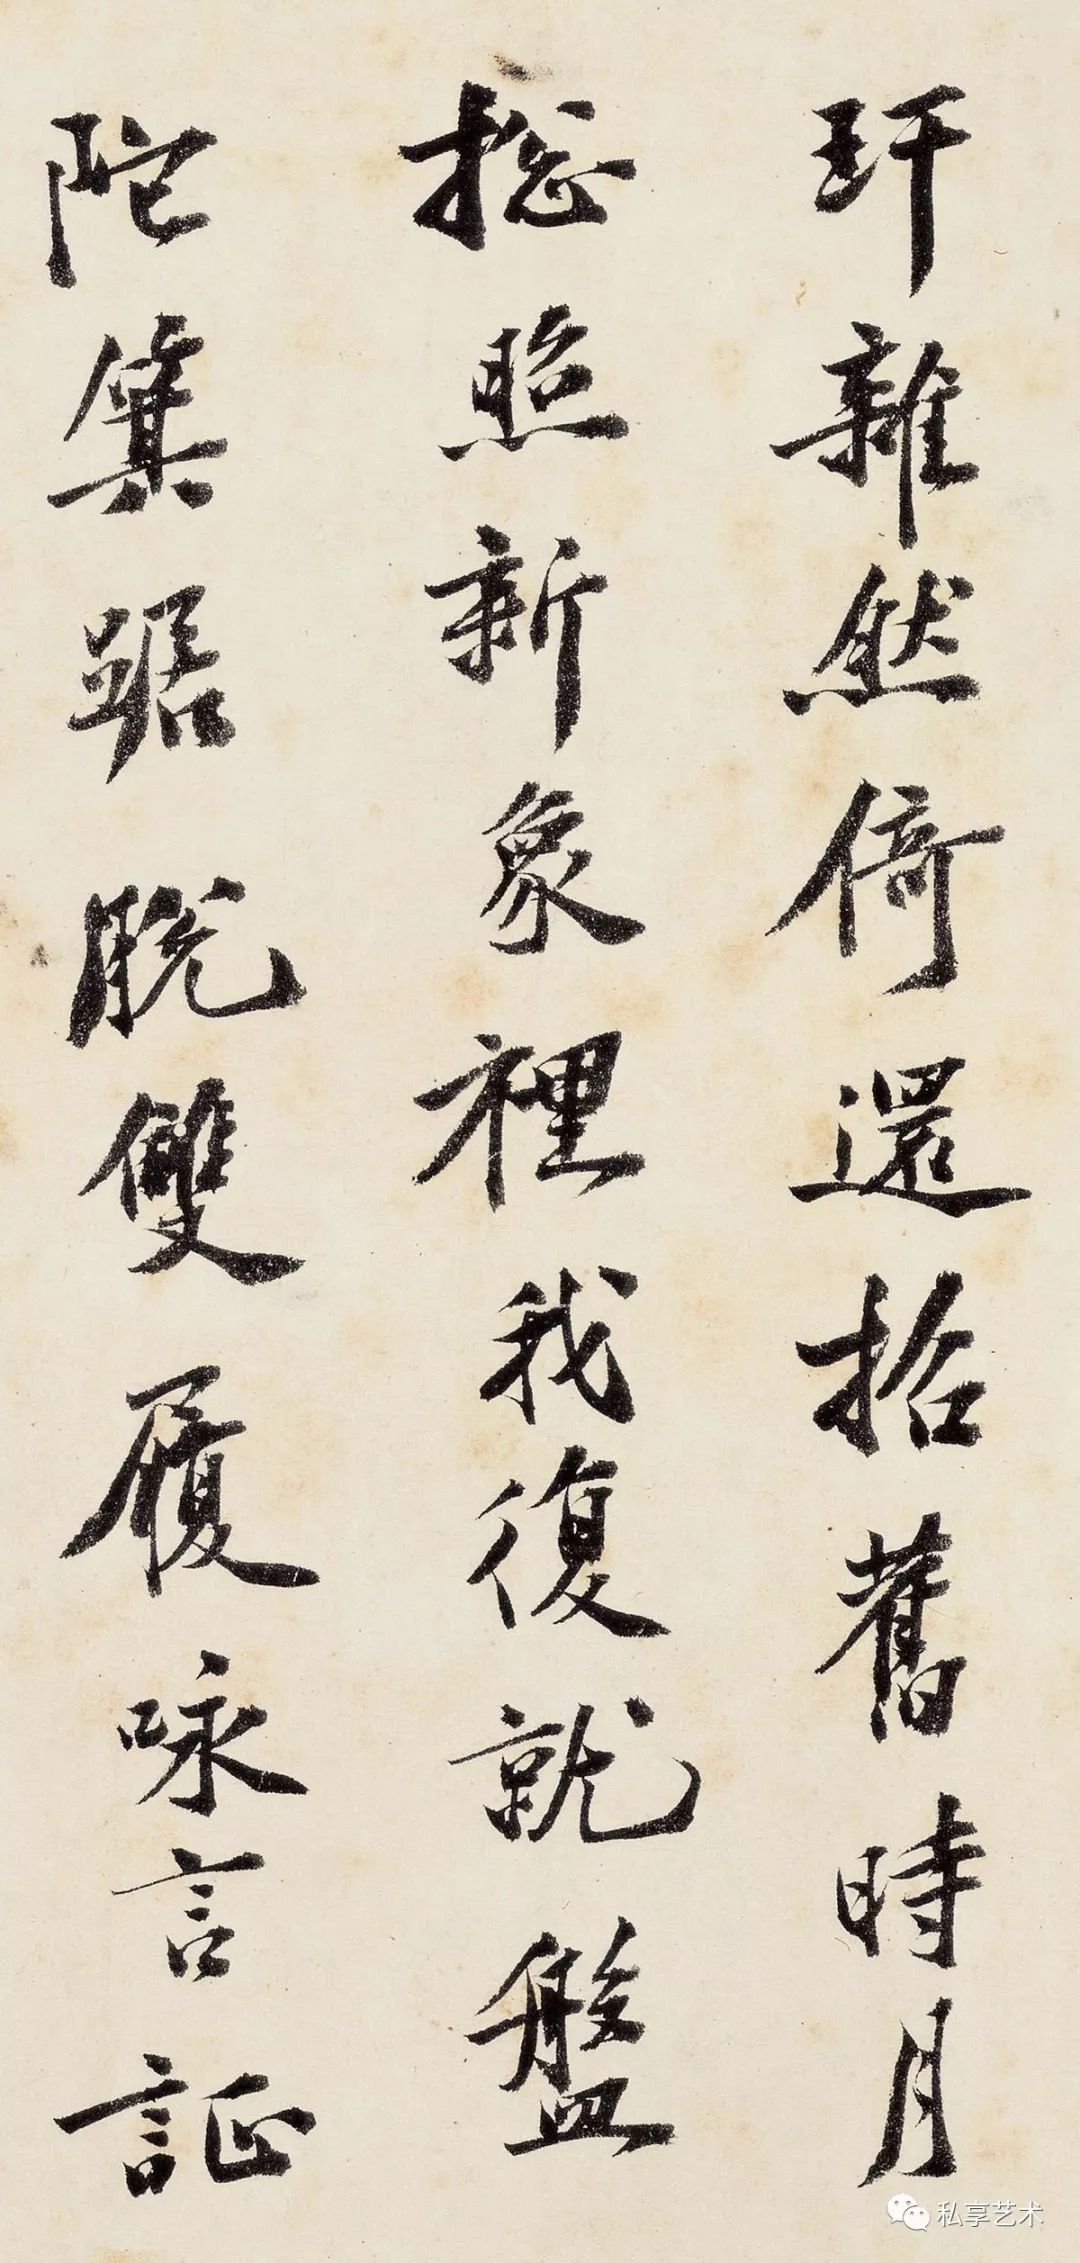 玕雜然倚還拾舊時月
捴照新象裡我復就盤
陀箕踞脫雙履咏言証
私享艺术